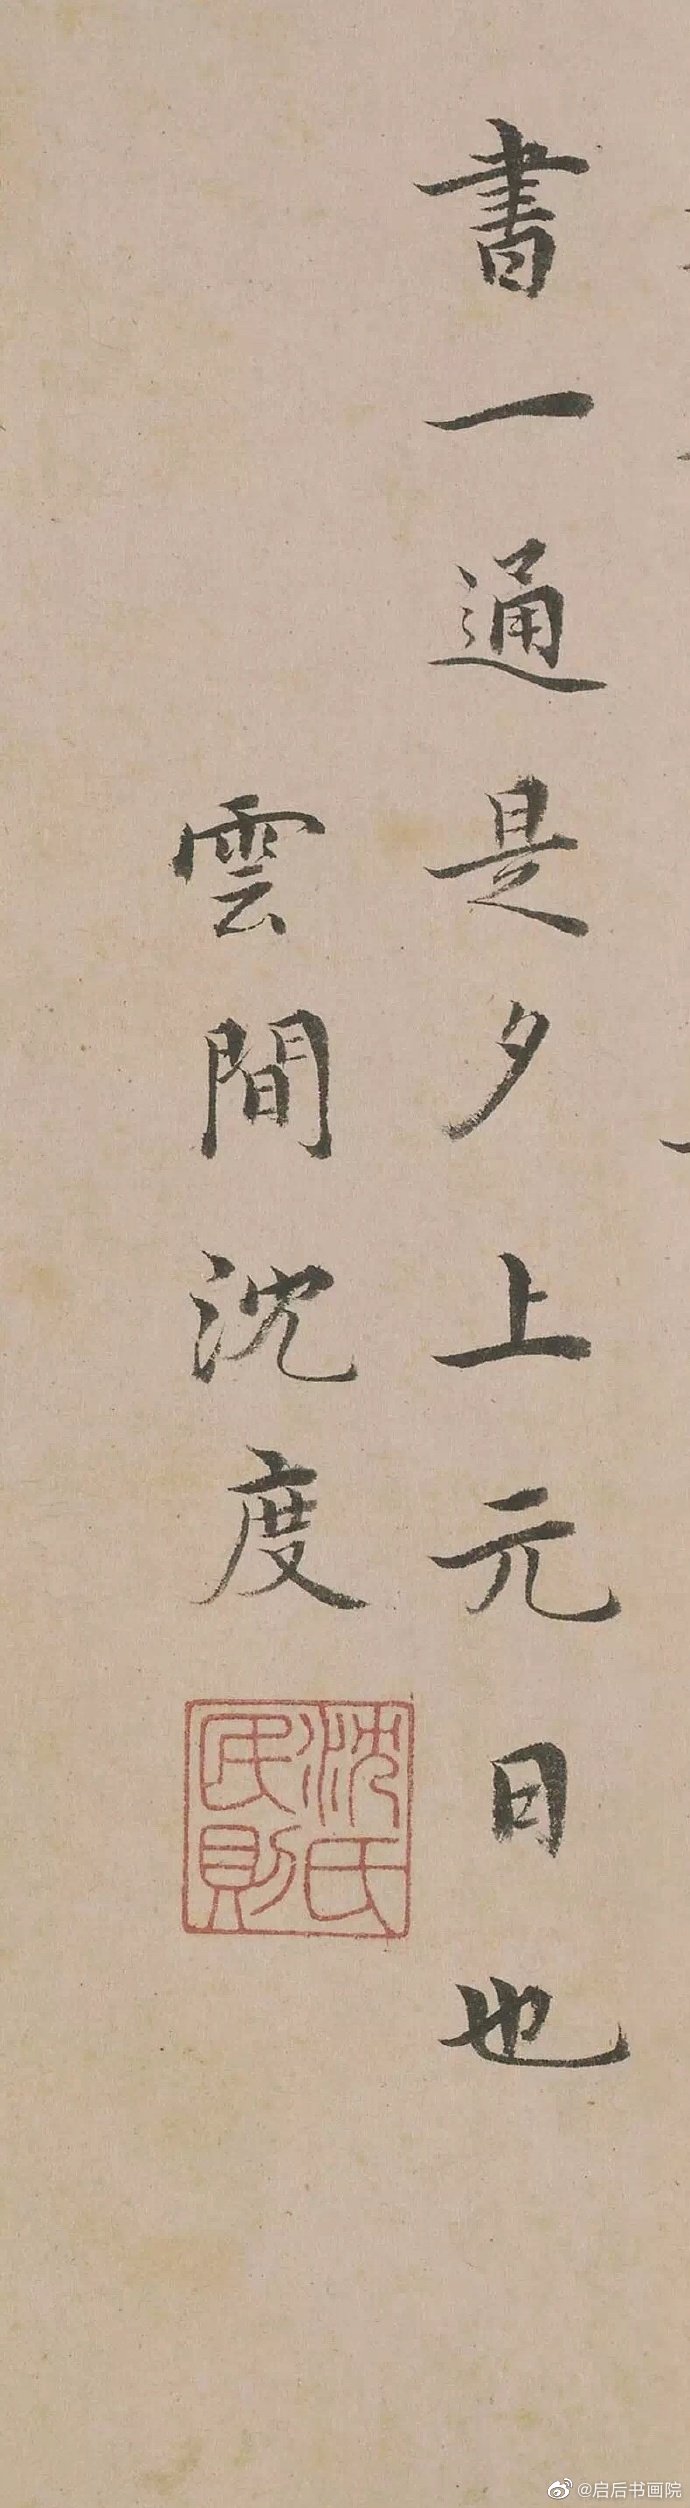 書一通是夕上元日也
雲間沈度
沈氏民則
@启后书画院